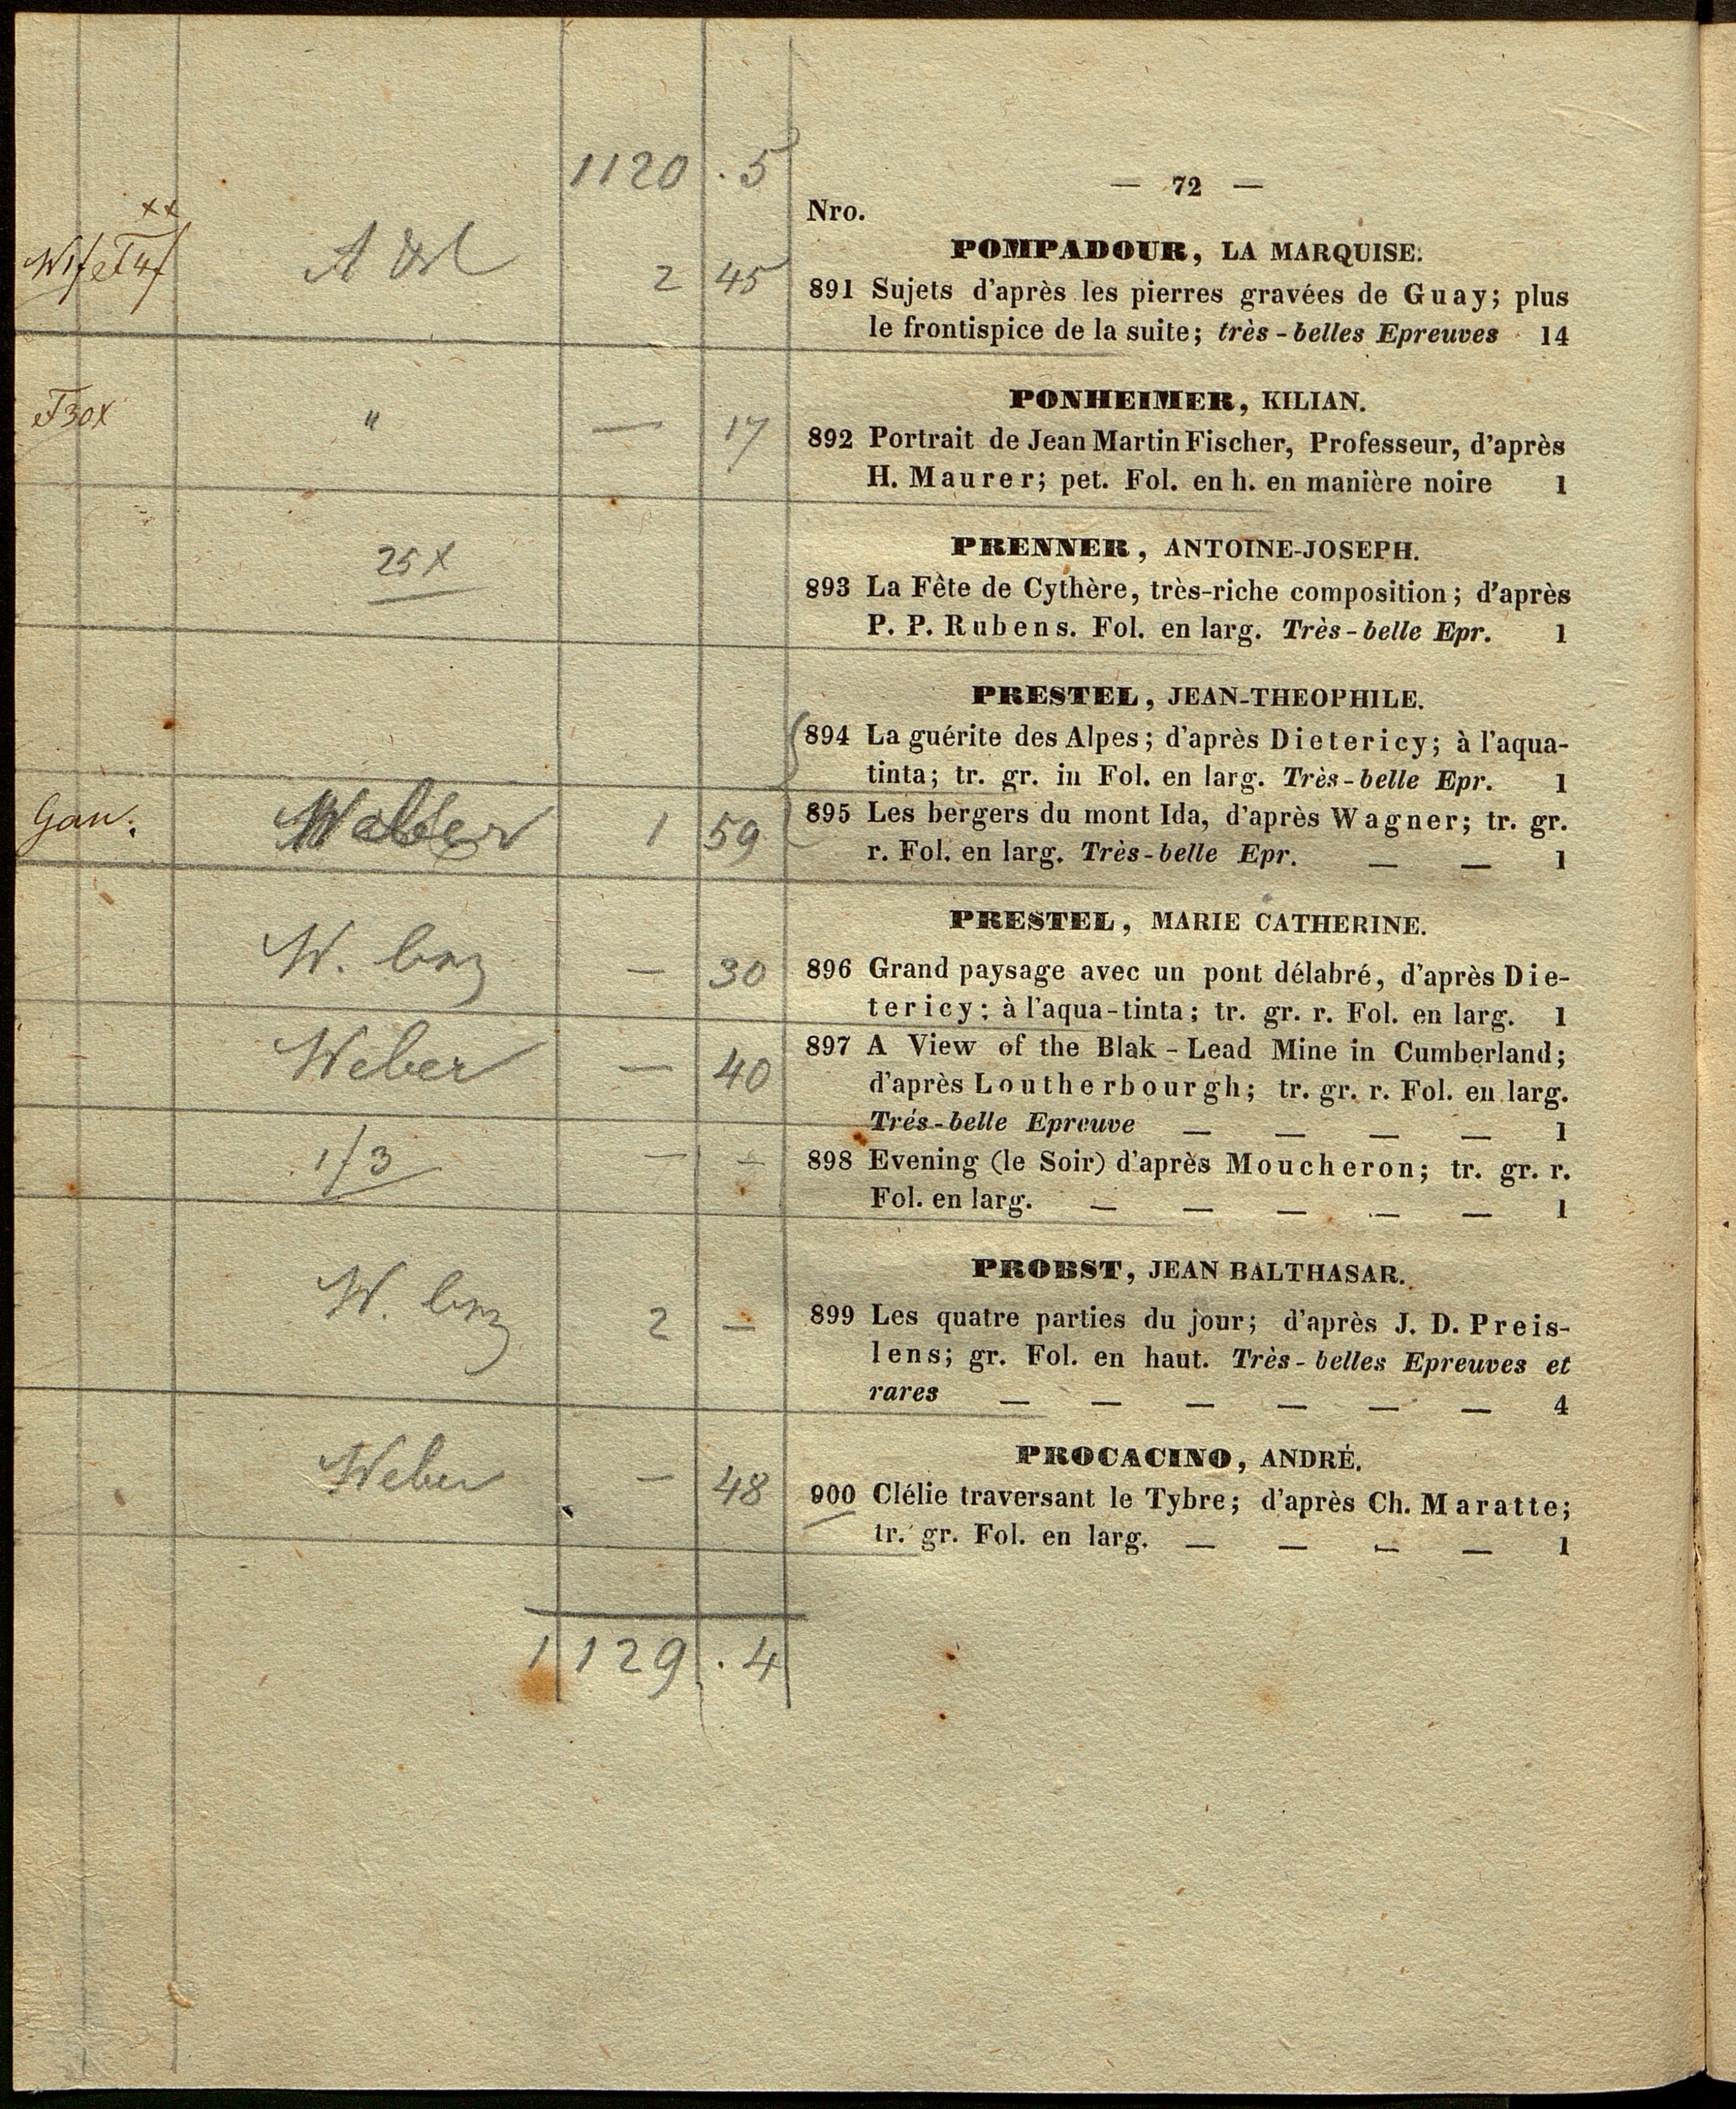 1120 . 5
— 72 —
Nro.
POMPADOUR, LA MARQUISE.
2 45
891 Sujets d'après les pierres gravées de Guay; plus
le frontispice de la suite; très-belles Epreuves 14
PONHEIMER, KILIAN.
30x " — 17
892 Portrait de Jean Martin Fischer, Professeur, d'après
H. Maurer; pet. Fol. en h. en manière noire 1
PRENNER, ANTOINE-JOSEPH.
25 x
893 La Fête de Cythère, très-riche composition; d'après
P. P. Rubens. Fol. en larg. Très-belle Epr. 1
PRESTEL, JEAN-THEOPHILE.
894 La guérite des Alpes; d'après Dietericy; à l'aqua-
tinta; tr. gr. in Fol. en larg. Très-belle Epr. 1
1 59
895 Les bergers du mont Ida, d'après Wagner; tr. gr.
r. Fol. en larg. Très-belle Epr. — — 1
PRESTEL, MARIE CATHERINE.
W. — 30
896 Grand paysage avec un pont délabré, d'après Die-
tericy; à l'aqua-tinta; tr. gr. r. Fol. en larg. 1
Weber — 40
897 A View of the Blak-Lead Mine in Cumberland;
d'après Loutherbourgh; tr. gr. r. Fol. en larg.
Trés-belle Epreuve — — — — 1
1/3 — —
898 Evening (le Soir) d'après Moucheron; tr. gr. r.
Fol. en larg. — — — — — 1
PROBST, JEAN BALTHASAR.
W. 2 —
899 Les quatre parties du jour; d'après J. D. Preis-
lens; gr. Fol. en haut. Très-belles Epreuves et
rares — — — — — — 4
PROCACINO, ANDRÉ.
Weber — 48
900 Clélie traversant le Tybre; d'après Ch. Maratte;
tr. gr. Fol. en larg. — — — — 1
1129 . 4